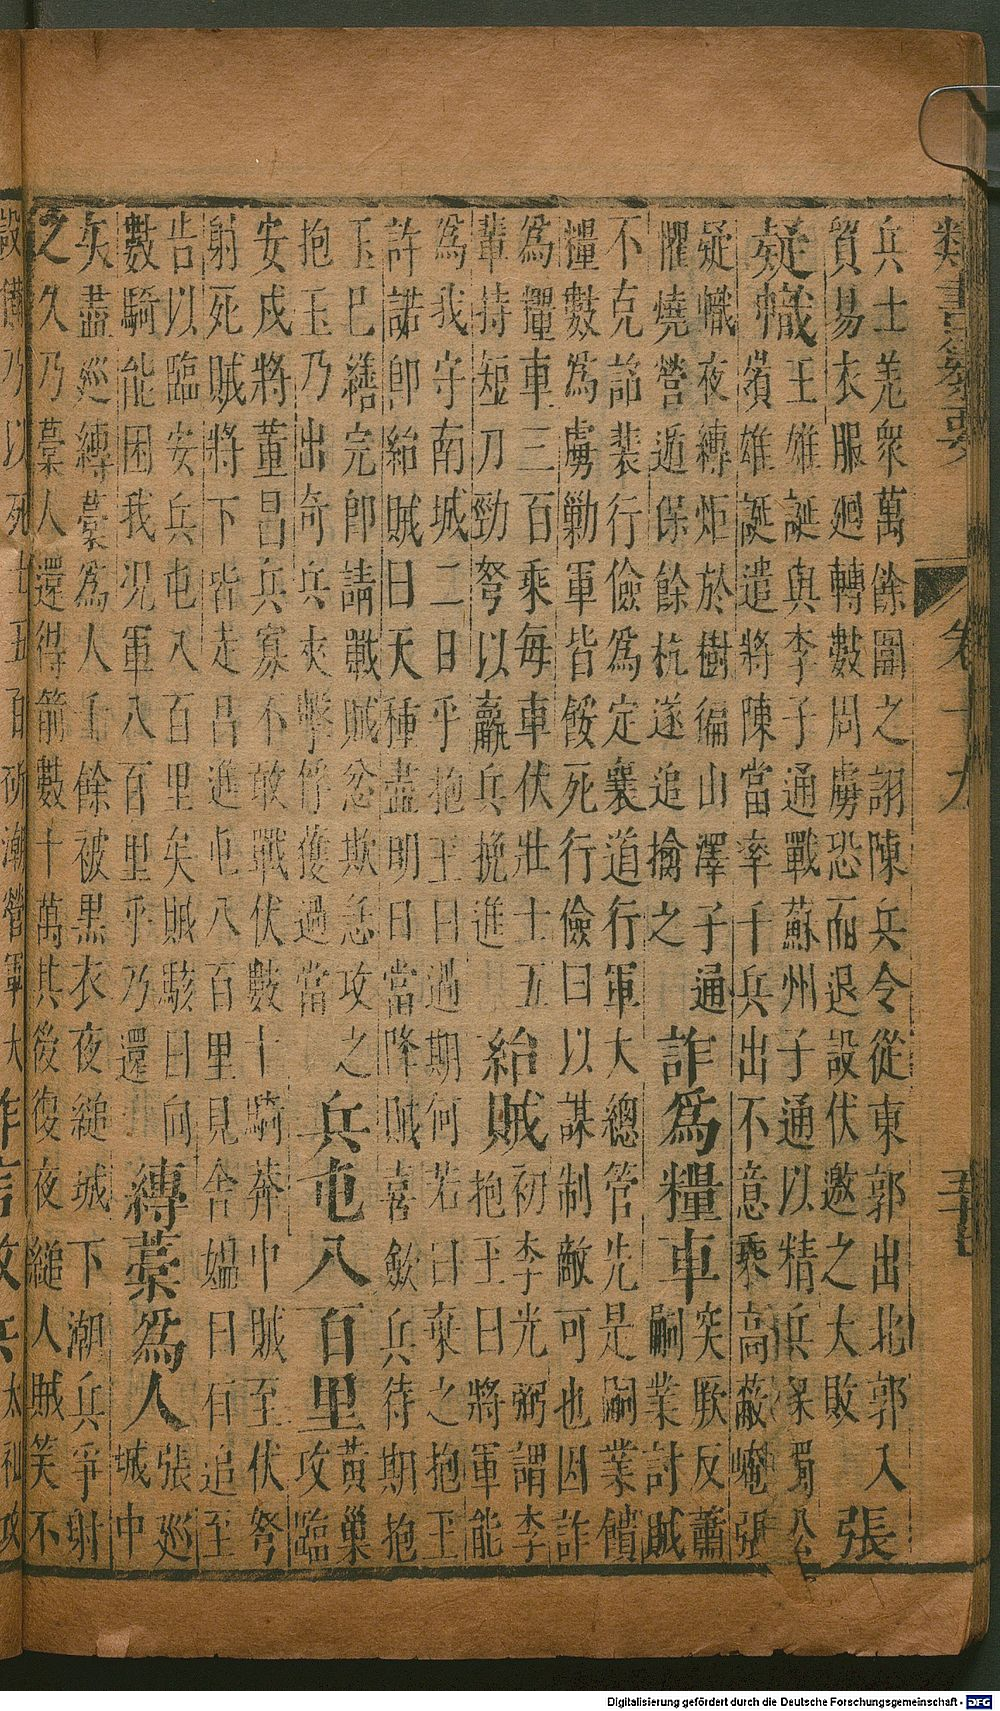 類書纂要 卷十九 五十七
兵士羗衆萬餘圍之詡陳兵令從東郭出北郭入
貿易衣服廻轉數周虜恐而退設伏邀之大敗
張
疑幟
王雄誕與李子通戰蘇州子通以精兵
雄誕遣將陳當率千兵出不意乘高蔽嶮張
疑幟夜縛炬於樹徧山澤子通
懼燒營遁保餘杭遂追擒之
詐為糧車
突厥反蕭
嗣業討賊
不克詔裴行儉為定襄道行軍大總管先是嗣業饋
糧數為虜勦軍皆餒死行儉曰以謀制敵可也因詐
為糧車三百乘每車伏壯士五
輩持短刀勁弩以羸兵挽進
紿賊
初李光弼謂李
抱玉曰將軍能
為我守南城二日乎抱玉曰過期何若曰棄之抱玉
許諾即紿賊曰天種盡明日當降賊喜歛兵待期抱
玉已繕完即請戰賊忿欺急攻之
抱玉乃出奇兵夾擊俘獲過當
兵屯八百里
黃巢
攻臨
安戍將董昌兵寡不敢戰伏數十騎莽中賊至伏弩
射死賊將下皆走昌進屯八百里見舍媼曰有追至
告以臨安兵屯八百里矣賊駭曰向
數騎能困我况軍八百里乎乃還
縛藁為人
張巡
城中
矢盡巡縛藁為人千餘被黑衣夜縋城下潮兵爭射
之久乃藁人還得箭數十萬其後復夜縋人賊笑不
設備乃以死士五百斫潮營軍大
詐言救兵
太祖攻
Digitalisierung gefördert durch die Deutsche Forschungsgemeinschaft - DFG